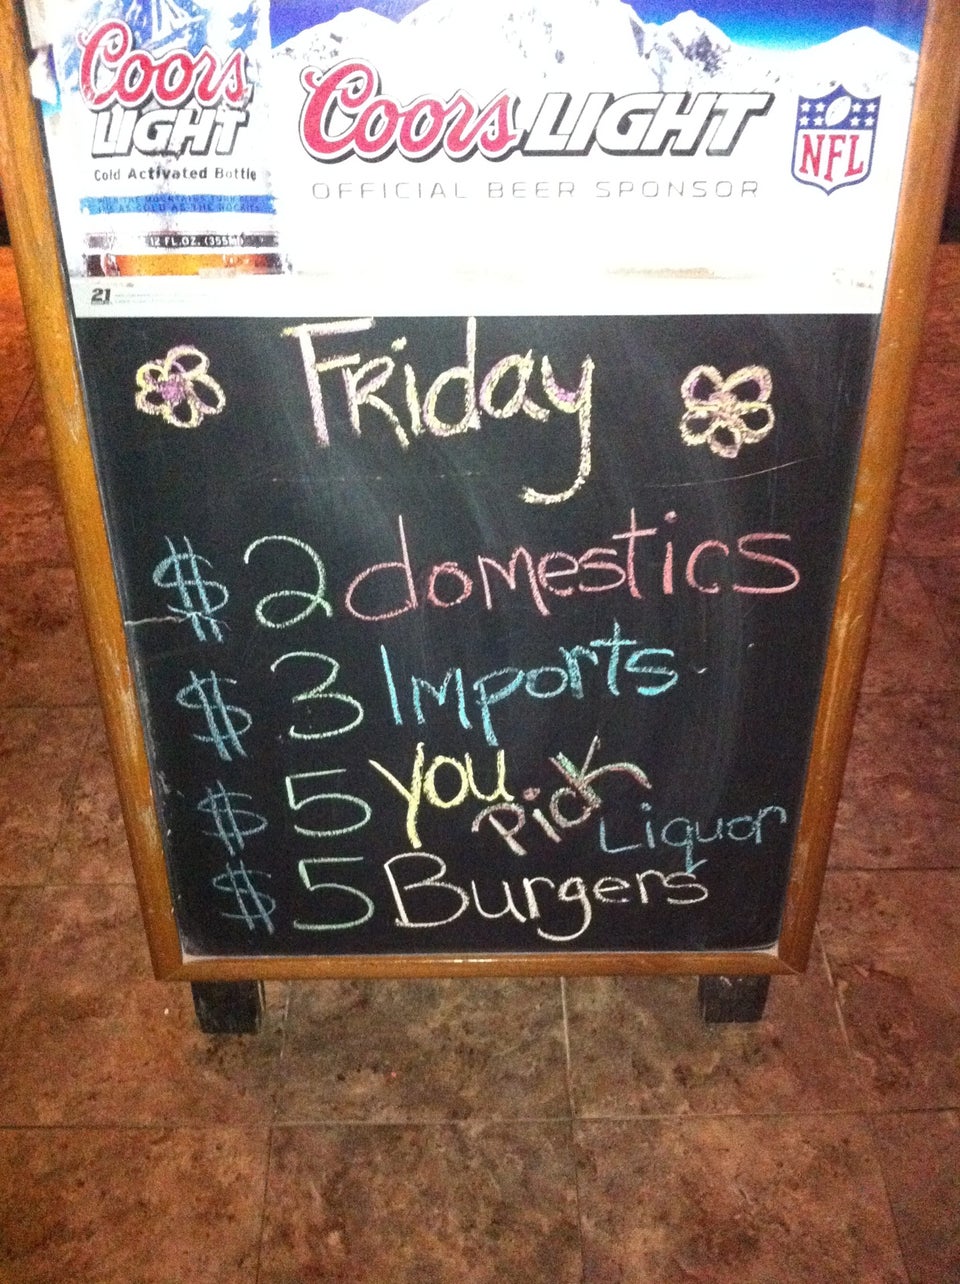 Coors
LIGHT
Cold Activated Bottle
12 FL.OZ. (355
21
Coors LIGHT
OFFICIAL BEER SPONSOR
NFL
FRiday
$ 2 domestics
$ 3 Imports
$ 5 you Pick Liquor
$ 5 Burgers